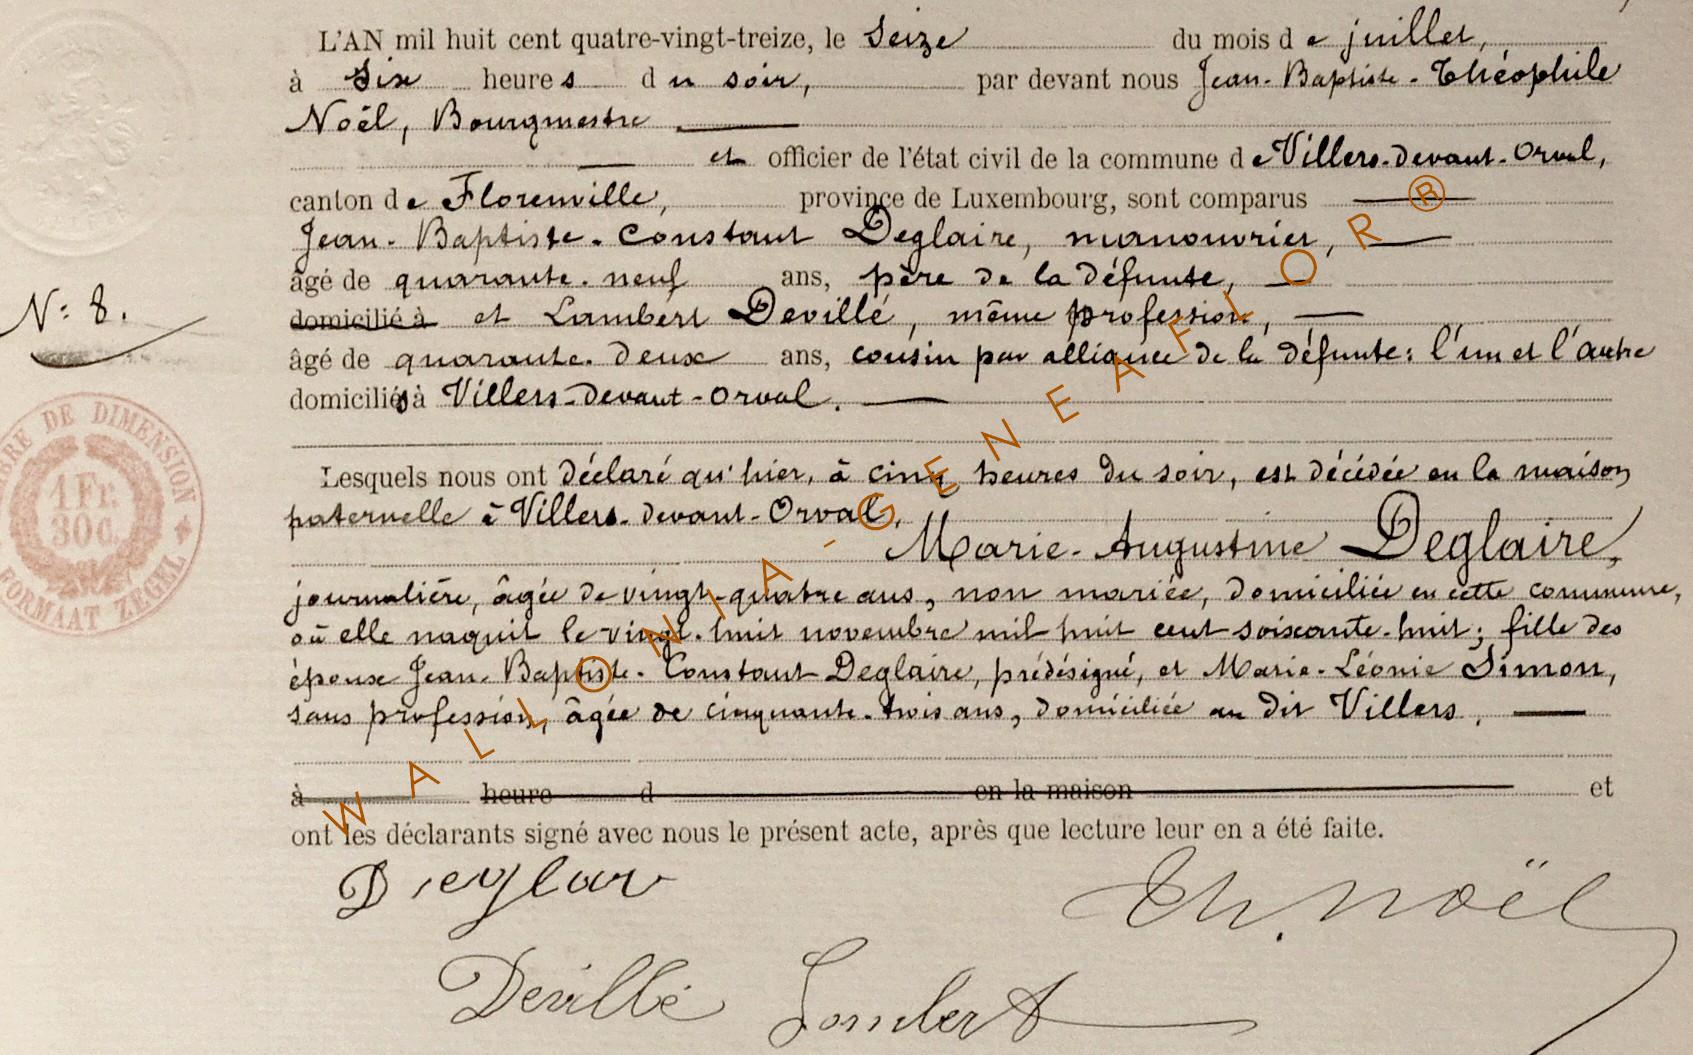 L'AN mil huit cent quatre-vingt-treize, le Seize du mois de juillet,
à Six heures du soir, par devant nous Jean-Baptiste-Théophile
Noël, Bourgmestre
et officier de l'état civil de la commune de Villers-devant-Orval,
canton de Florenville, province de Luxembourg, sont comparus
Jean-Baptiste-Constant Deglaire, manouvrier,
âgé de quarante-neuf ans, père de la défunte,
domicilié à et Lambert Devillé, même profession,
N: 8.
âgé de quarante-deux ans, cousin par alliance de la défunte: l'un et l'autre
domiciliés à Villers-devant-Orval.
Lesquels nous ont déclaré qu'hier, à cinq heures du soir, est décédée en la maison
paternelle à Villers-devant-Orval,
Marie-Augustine Deglaire,
journalière, âgée de vingt-quatre ans, non mariée, domiciliée en cette commune,
où elle naquit le vingt-huit novembre mil huit cent soixante-huit; fille des
époux Jean-Baptiste-Constant Deglaire, prédésigné, et Marie-Léonie Simon,
sans profession, âgée de cinquante-trois ans, domiciliée au dit Villers.
à heure d en la maison et
ont les déclarants signé avec nous le présent acte, après que lecture leur en a été faite.
Th. Noël
Devillé Lambert
BRE DE DIMENSION
1 Fr.
30 c.
FORMAAT ZEGEL
WALLONIA - GENEAFLOR®